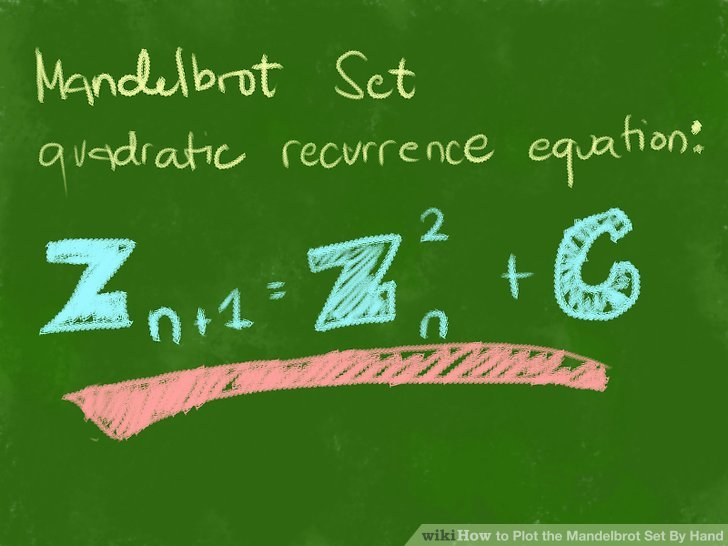 Mandelbrot Set
quadratic recurrence equation:
Zₙ₊₁ = Zₙ² + C
wikiHow to Plot the Mandelbrot Set By Hand